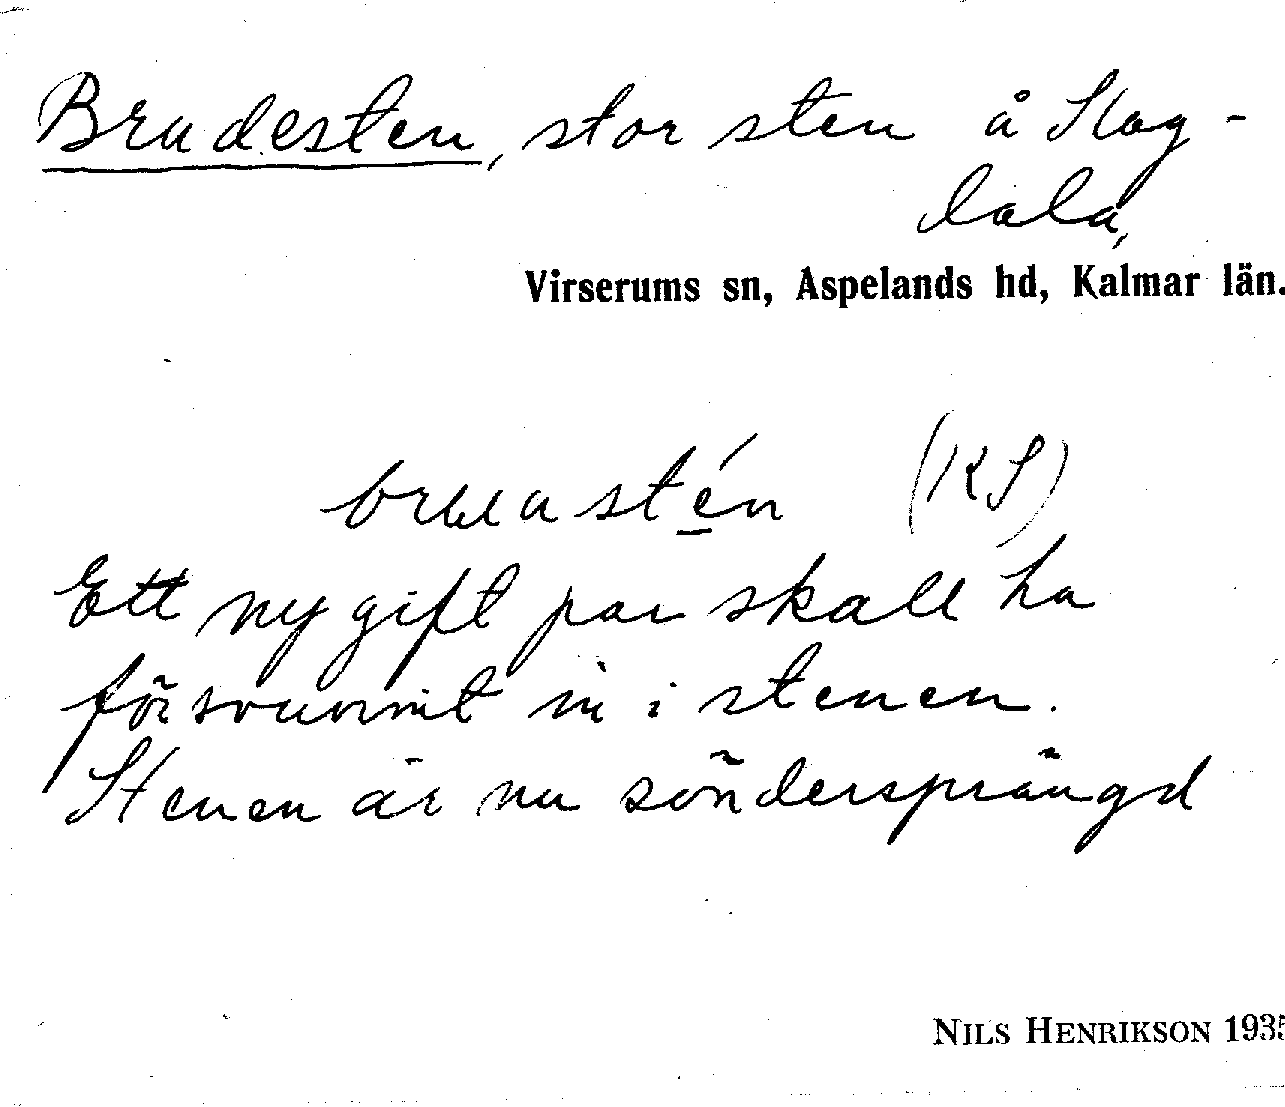 Brudesten, stor sten å Slag-
dala,
Virserums sn, Aspelands hd, Kalmar län.
(KS)
Ett nygift par skall ha
försvunnit in i stenen.
Stenen är nu söndersprängd
NILS HENRIKSON 1935